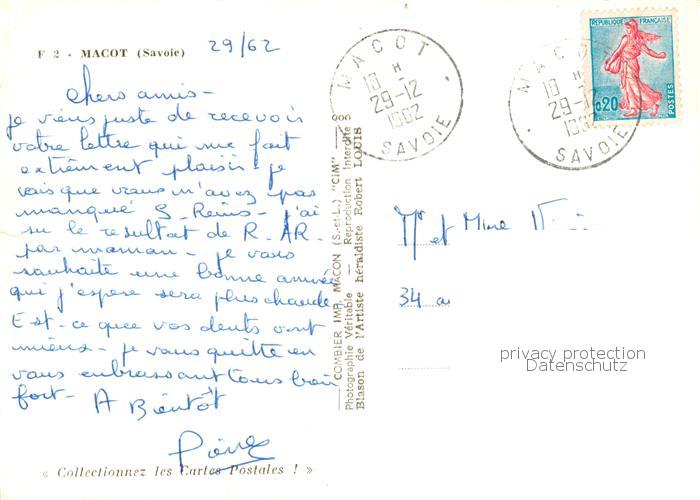 F 2 - MACOT (Savoie) 29/62
Chers amis -
je viens juste de recevoir
votre lettre qui me fait
extrêment plaisir - je
vois que vous m'avez pas
manqué S. Reims - j'ai
su le resultat de R. AR.
par maman - je vous
souhaite une bonne année
qui j'espere sera plus chaude
Est-ce que vos dents vont
mieux - je vous quitte en
vous embrassant tous bien
fort - A Bientôt
Pierre
« Collectionnez les Cartes Postales ! »
COMBIER IMP. MACON (S.-et-L.) "CIM"
Photographie Véritable — Reproduction Interdite
Blason de l'Artiste héraldiste Robert LOUIS
MACOT
18 H
29-12
1962
SAVOIE
MACOT
18 H
29-12
1962
SAVOIE
REPUBLIQUE FRANÇAISE
0,20
POSTES
Mr et Mme
34
privacy protection
Datenschutz